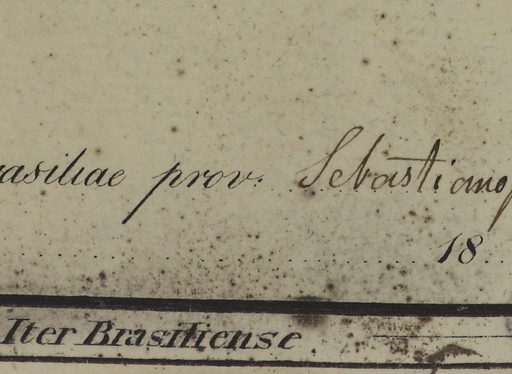 rasiliae prov. Sebastianop
18
Iter Brasiliense